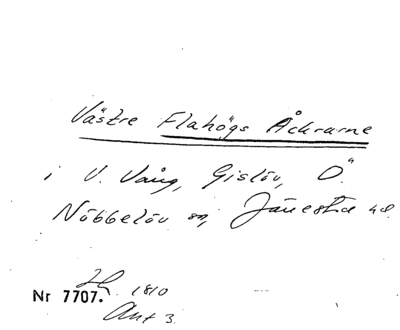 Västre Flahögs Åckrarne
i V. Vång, Gislöv, Ö.
Nöbbelöv sn, Järrestad hd
Nr 7707. Lh. 1810
Akt 3.